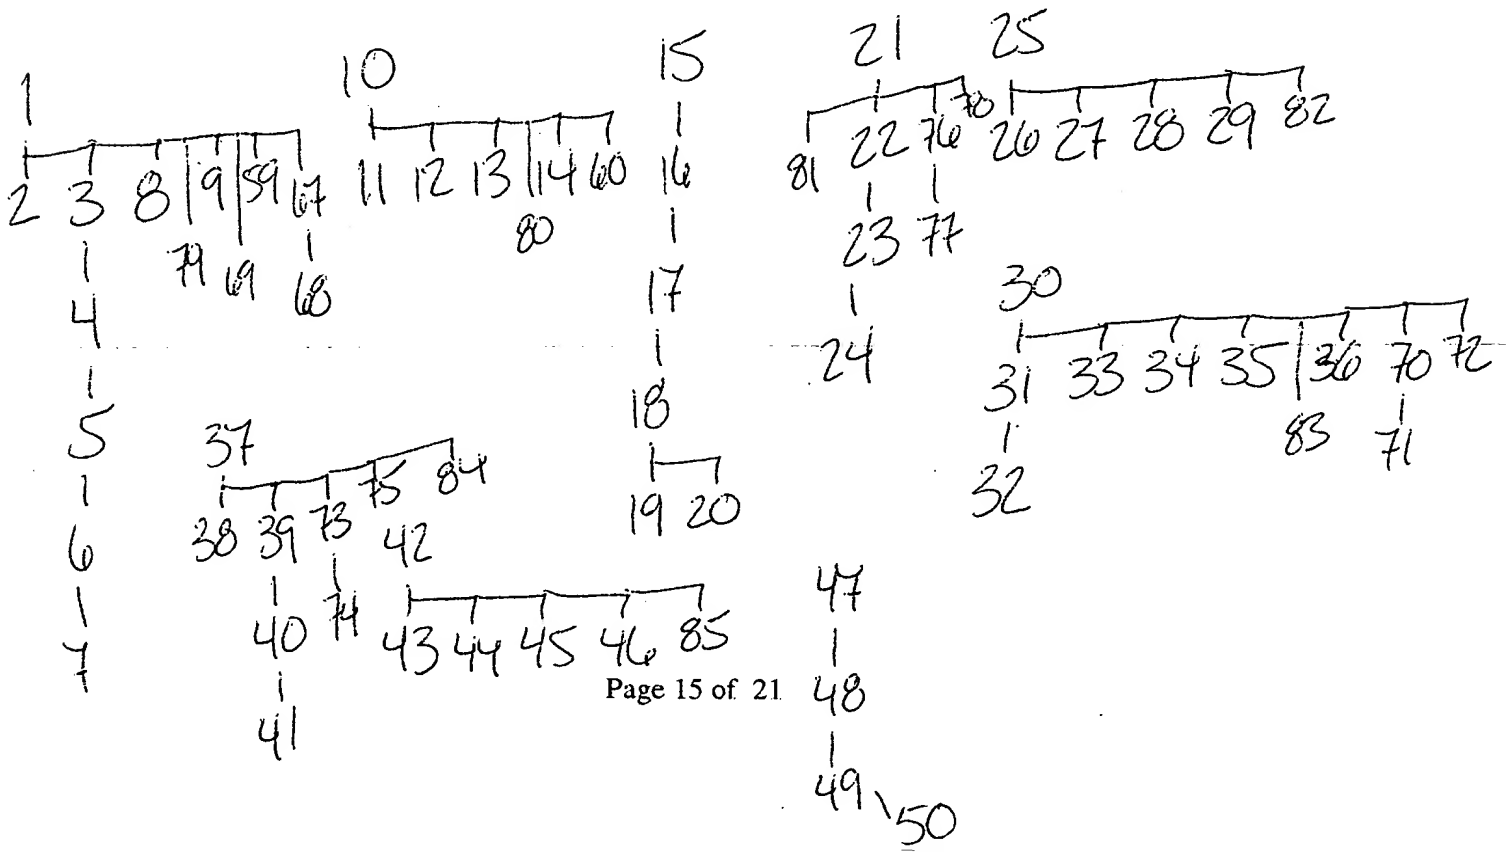 1
2 3 8 79 9 69 59 67
4 68
5
6
7
10
11 12 13 80 14 60
15
16
17
18
19 20
21
81 22 76 78
23 77
24
25
26 27 28 29 82
30
31 33 34 35 83 36 70 72
32 71
37
38 39 73 75 84
40 74
41
42
43 44 45 46 85
47
48
49 50
Page 15 of 21